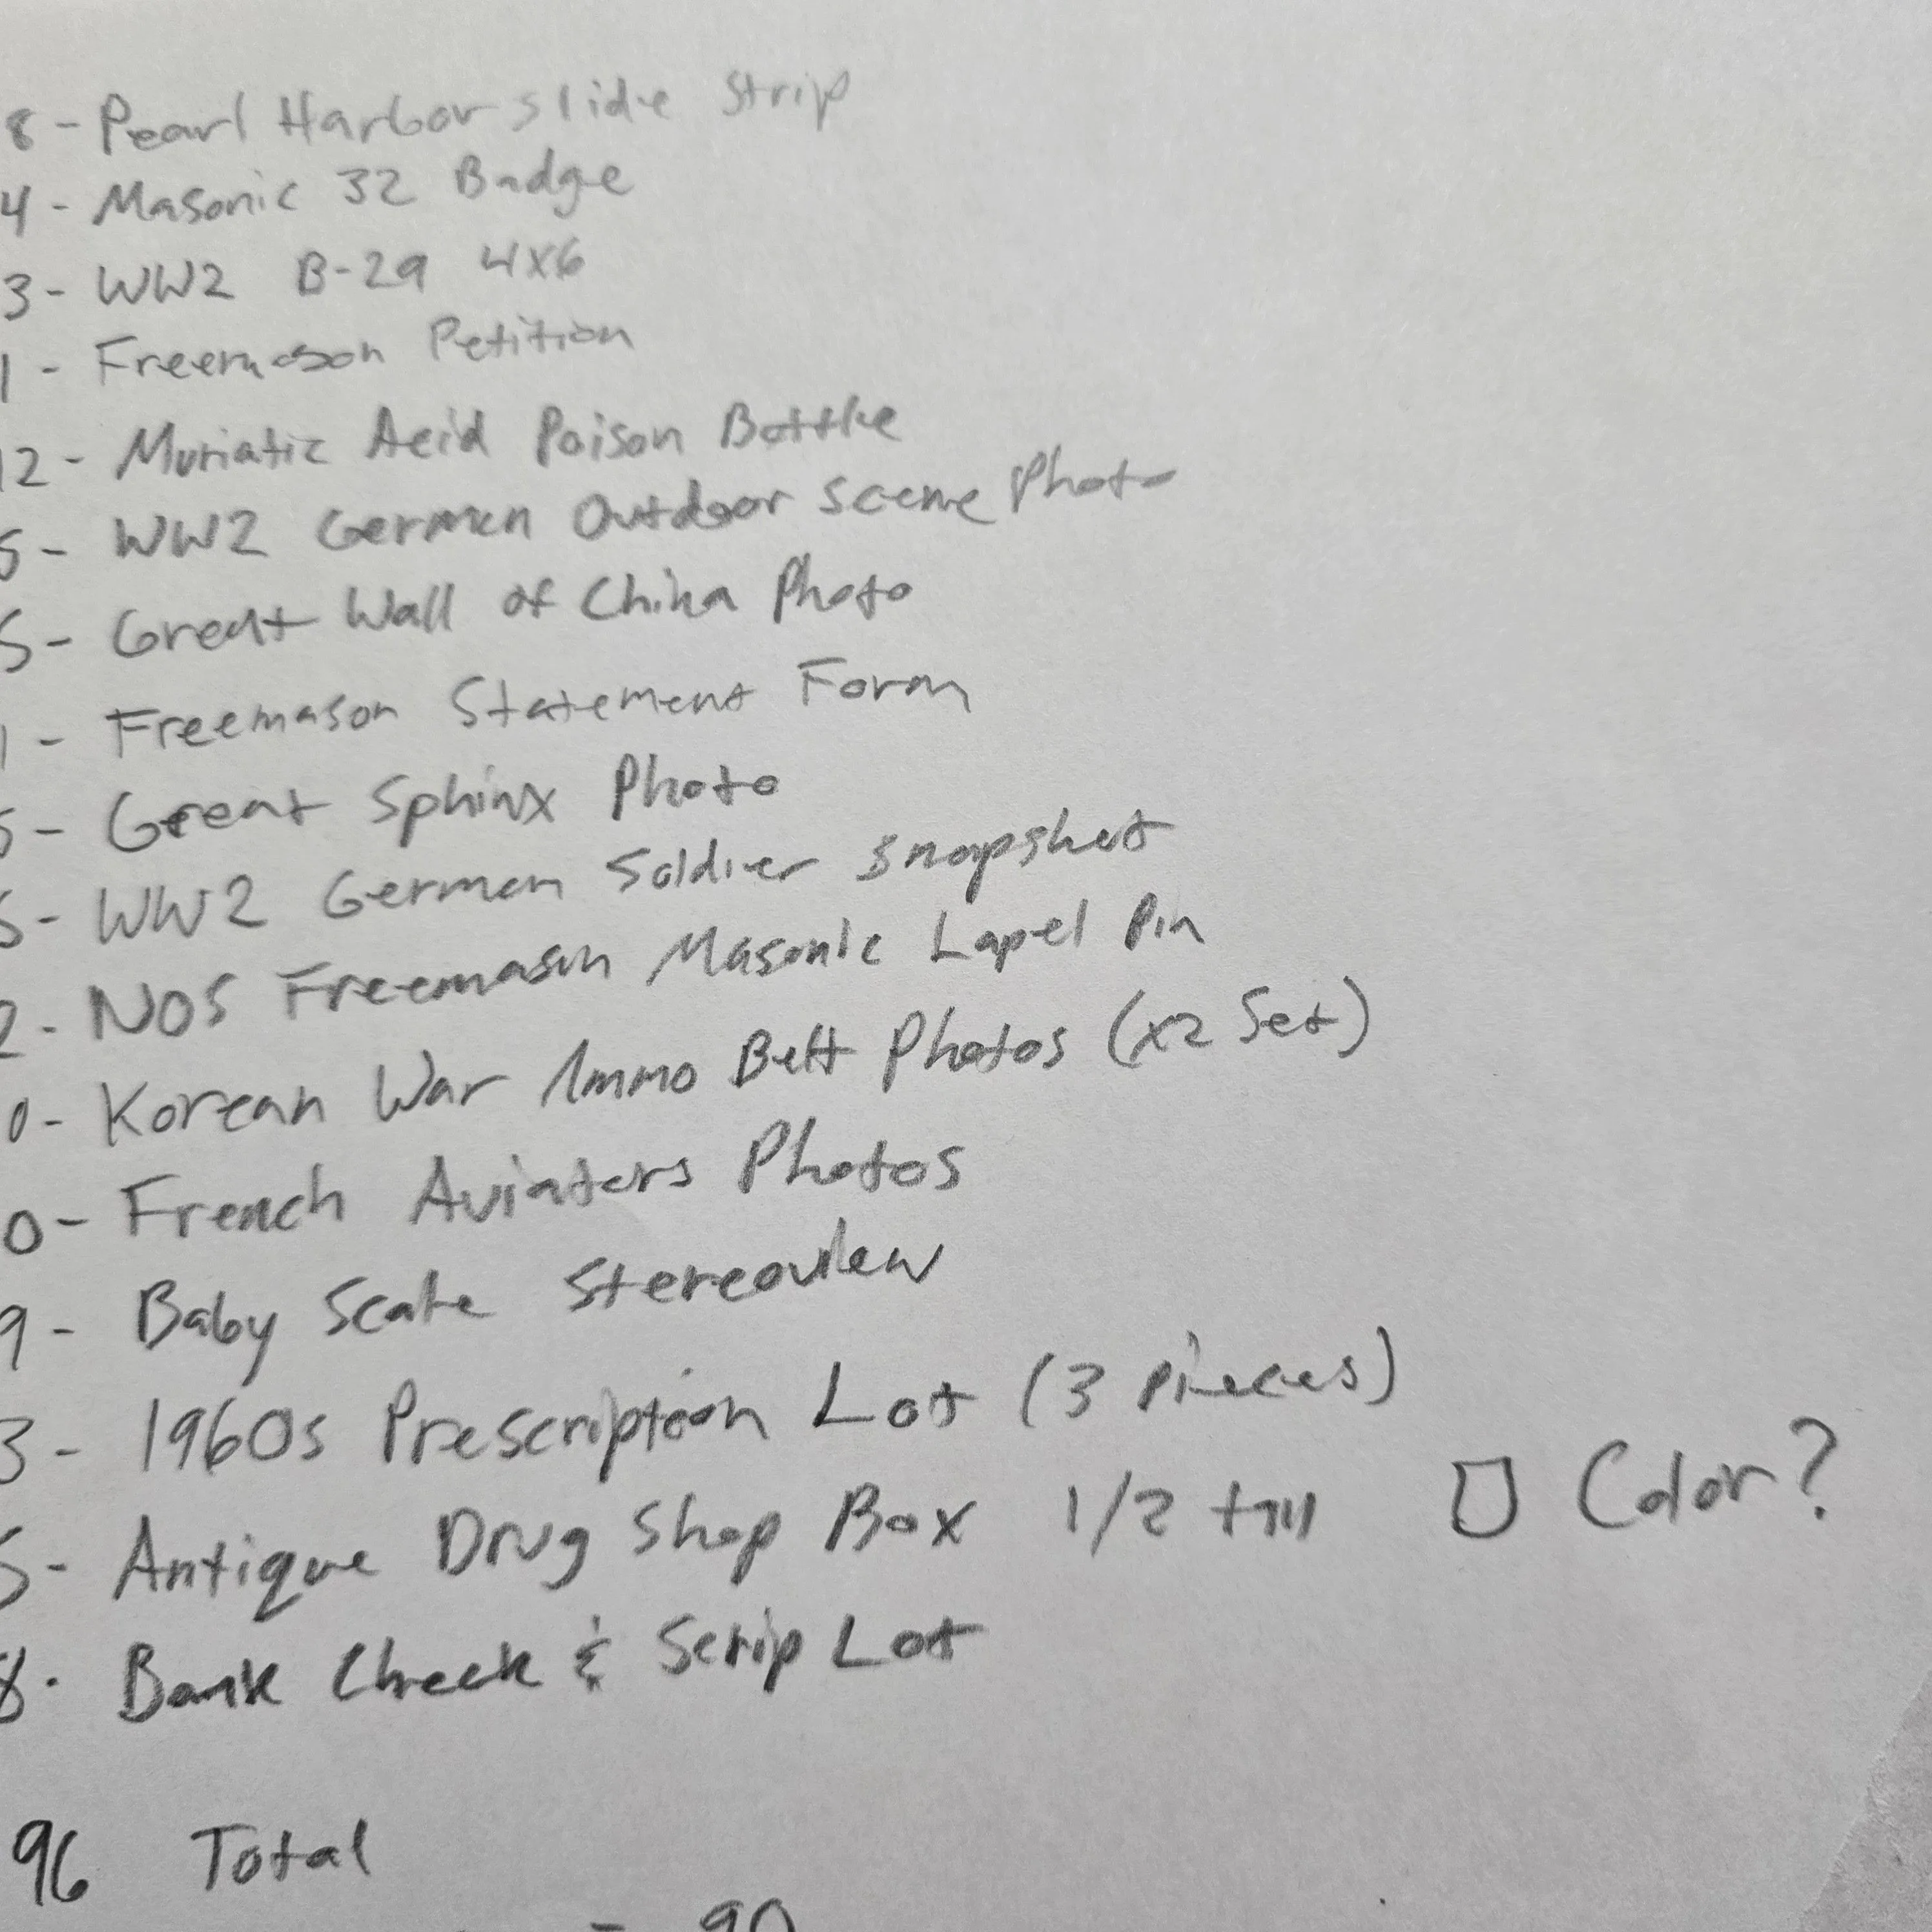 8 - Pearl Harbor slide Strip
4 - Masonic 32 Badge
3 - WW2 B-29 4X6
1 - Freemason Petition
12 - Muriatic Acid Poison Bottle
5 - WW2 German Outdoor Scene Photo
5 - Great Wall of China Photo
1 - Freemason Statement Form
5 - Great Sphinx Photo
5 - WW2 German Soldier Snapshot
2 - NOS Freemason Masonic Lapel Pin
0 - Korean War Ammo Belt Photos (x2 Set)
0 - French Aviators Photos
9 - Baby Scale Stereoview
3 - 1960s Prescription Lot (3 pieces)
5 - Antique Drug Shop Box 1/2 tall Color?
8. Bank Check & Scrip Lot
96 Total
= 90